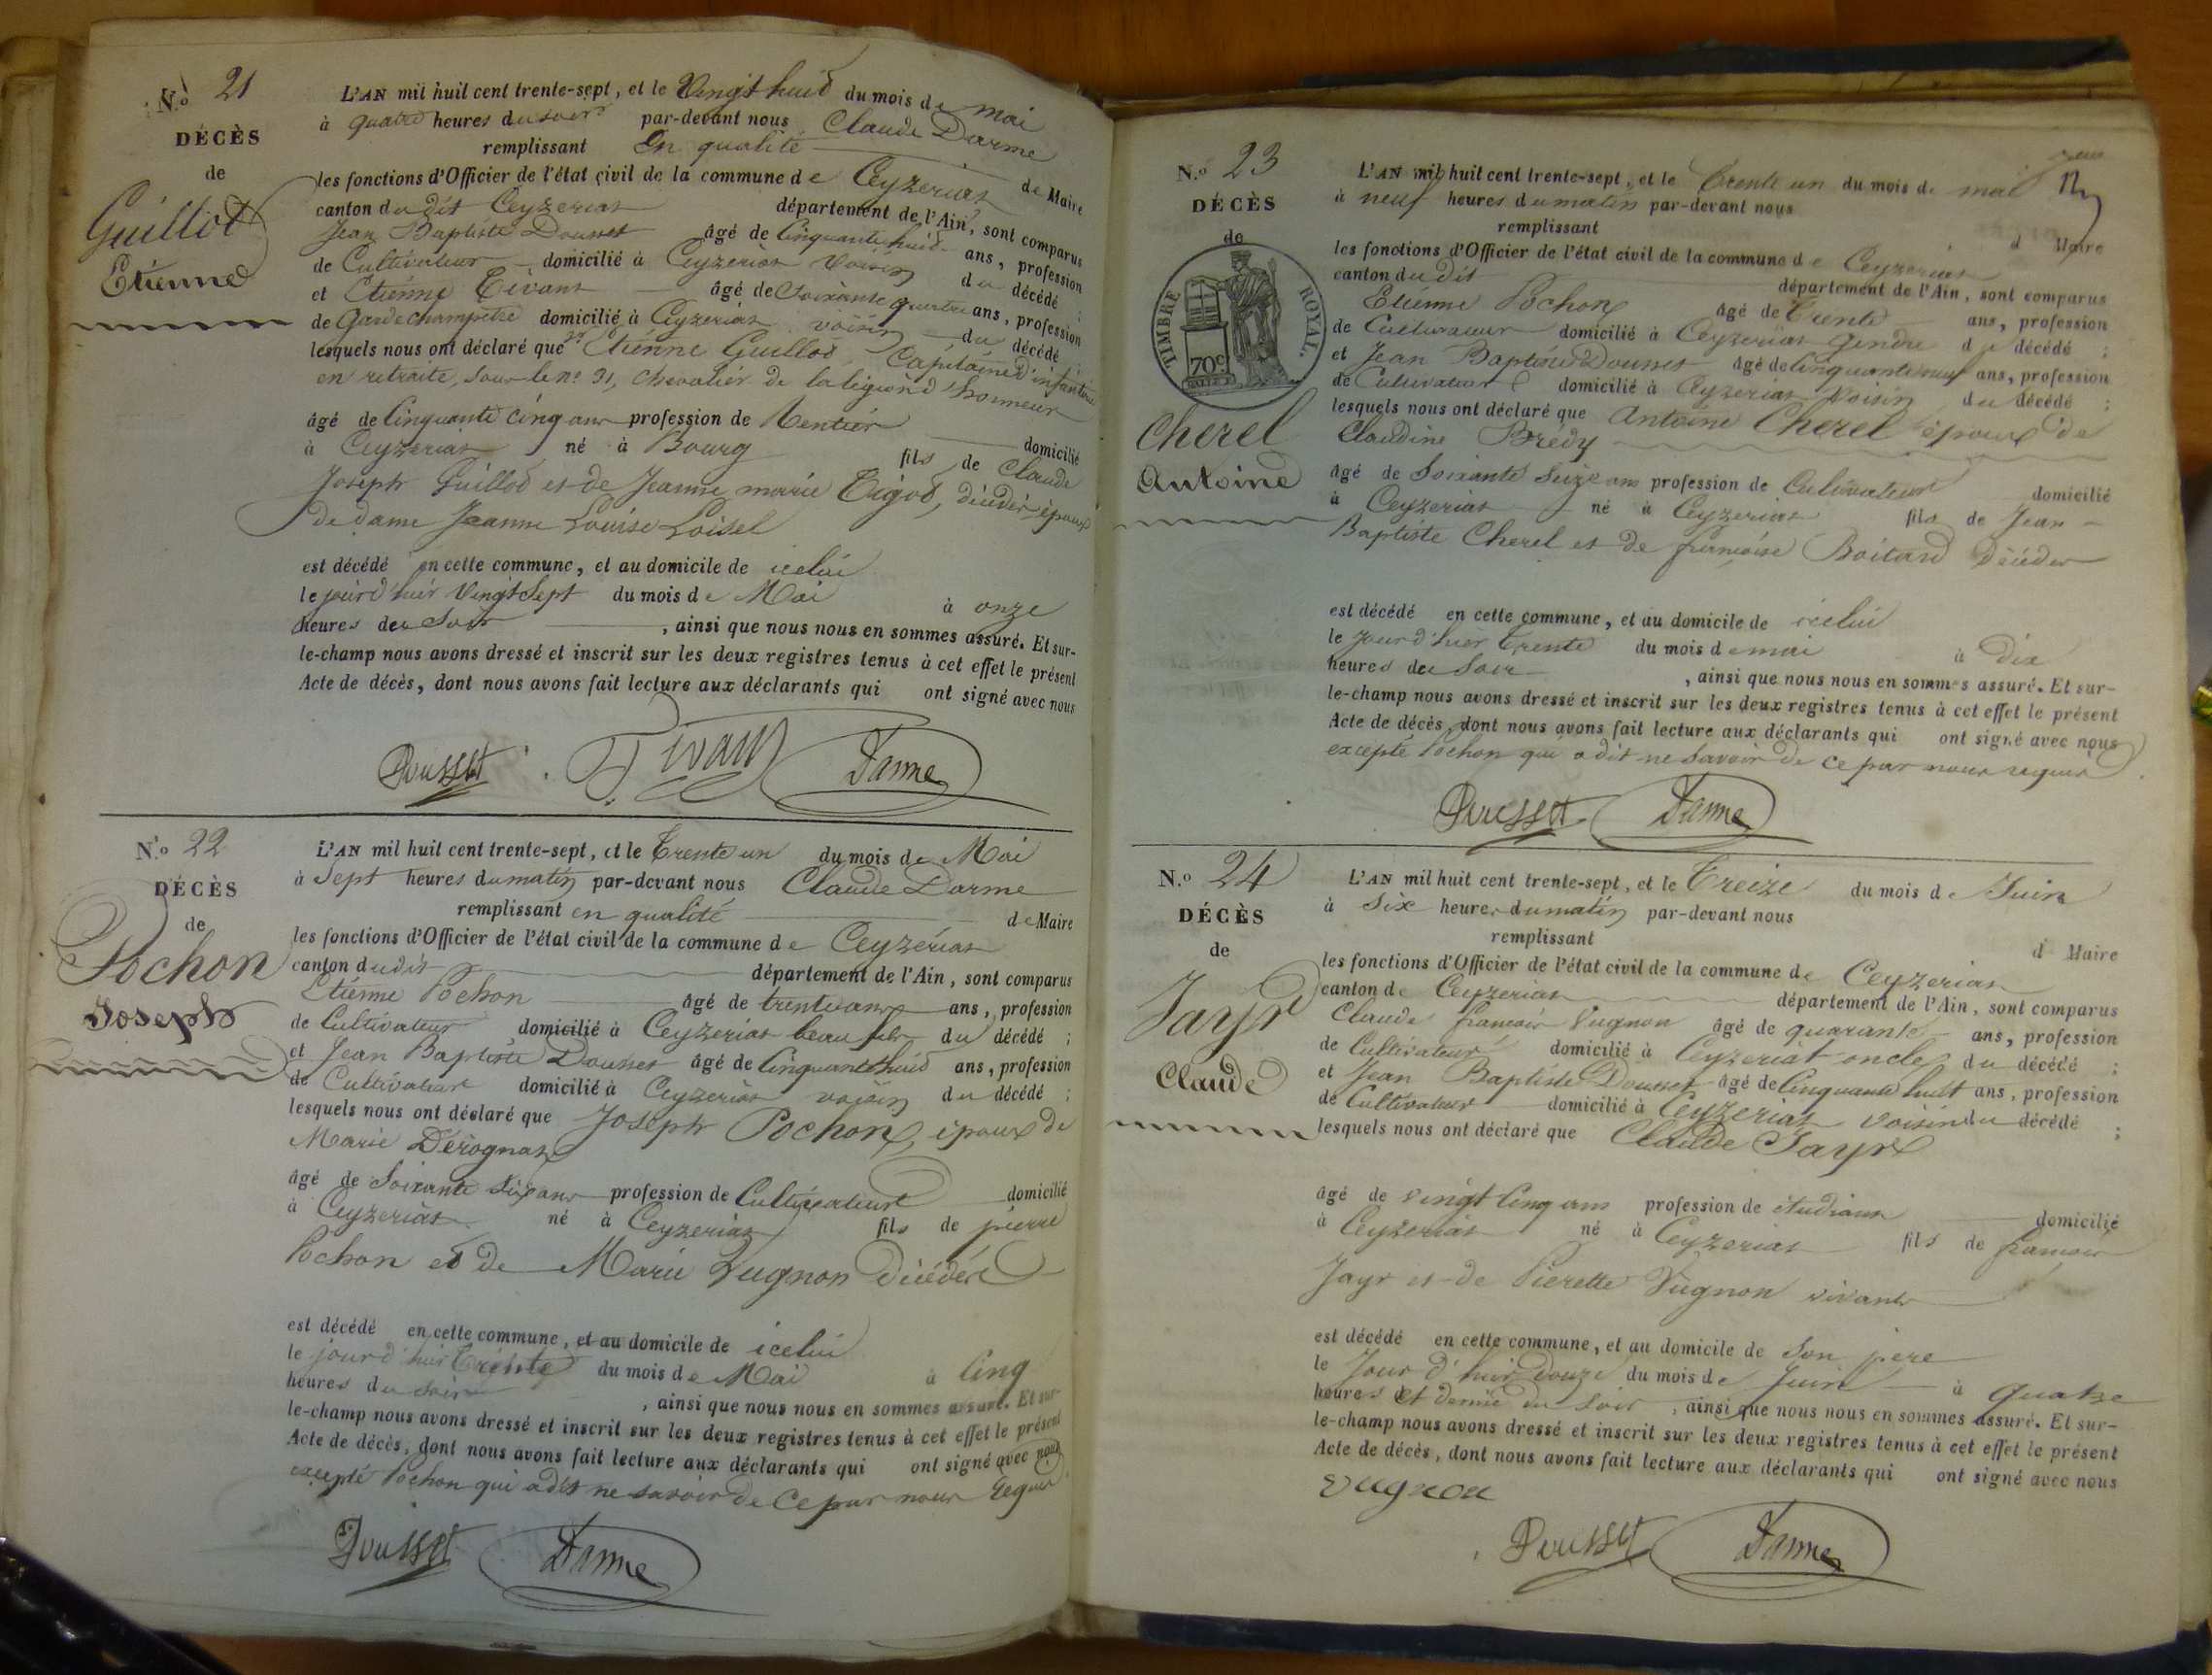 N.o 21
DÉCÈS
de
Guillot
Etienne
L'AN mil huit cent trente-sept, et le Vingt huit du mois de mai
à quatre heures du soir par-devant nous Claude Darme
remplissant En qualité de Maire
les fonctions d'Officier de l'état civil de la commune de Ceyzeriat
canton du dit Ceyzeriat département de l'Ain, sont comparus
Jean Baptiste Dousset âgé de Cinquante huit ans, profession
de Cultivateur domicilié à Ceyzeriat voisin du décédé ;
et Etienne Tivant âgé de Soixante quatre ans, profession
de Garde champêtre domicilié à Ceyzeriat voisin du décédé ;
lesquels nous ont déclaré que Etienne Guillot, Capitaine d'infanterie
en retraite, sous le n.o 31, chevalier de la légion d'honneur
âgé de Cinquante cinq ans profession de Rentier domicilié
à Ceyzeriat né à Bourg fils de Claude
Joseph Guillot et de Jeanne marie Tigot, décédés, époux
de dame Jeanne Louise Loisel
est décédé en cette commune, et au domicile de icelui
le jour d'hier Vingt Sept du mois de Mai à onze
heures du Soir, ainsi que nous nous en sommes assuré. Et sur-
le-champ nous avons dressé et inscrit sur les deux registres tenus à cet effet le présent
Acte de décès, dont nous avons fait lecture aux déclarants qui ont signé avec nous
Dousset Tivant Darme
N.o 22
DÉCÈS
de
Pochon
Joseph
L'AN mil huit cent trente-sept, et le Trente un du mois de Mai
à Sept heures du matin par-devant nous Claude Darme
remplissant en qualité de Maire
les fonctions d'Officier de l'état civil de la commune de Ceyzériat
canton du dit département de l'Ain, sont comparus
Etienne Pochon âgé de trente ans ans, profession
de Cultivateur domicilié à Ceyzeriat beau fils du décédé ;
et Jean Baptiste Dousset âgé de Cinquante huit ans, profession
de Cultivateur domicilié à Ceyzeriat voisin du décédé ;
lesquels nous ont déclaré que Joseph Pochon, époux de
Marie Dérognat
âgé de Soixante Six ans profession de Cultivateur domicilié
à Ceyzeriat né à Ceyzeriat fils de pierre
Pochon et de Marie Vugnon décédés
est décédé en cette commune, et au domicile de icelui
le jour d'hier Trente du mois de Mai à Cinq
heures du Soir, ainsi que nous nous en sommes assuré. Et sur-
le-champ nous avons dressé et inscrit sur les deux registres tenus à cet effet le présent
Acte de décès, dont nous avons fait lecture aux déclarants qui ont signé avec nous
excepté Pochon qui a dit ne savoir de ce par nous requis
Dousset Darme
N.o 23
DÉCÈS
de
TIMBRE ROYAL.
70c
Cherel
Antoine
L'AN mil huit cent trente-sept, et le Trente un du mois de mai
à neuf heures du matin par-devant nous
remplissant d Maire
les fonctions d'Officier de l'état civil de la commune de Ceyzeriat
canton du dit département de l'Ain, sont comparus
Etienne Pochon âgé de Trente ans, profession
de Cultivateur domicilié à Ceyzeriat Gendre du décédé ;
et Jean Baptiste Dousset âgé de Cinquante neuf ans, profession
de Cultivateur domicilié à Ceyzeriat Voisin du décédé ;
lesquels nous ont déclaré que Antoine Cherel époux de
Claudine Brédy
âgé de Soixante Seize ans profession de Cultivateur domicilié
à Ceyzeriat né à Ceyzeriat fils de Jean
Baptiste Cherel et de françoise Boitard Décédés
est décédé en cette commune, et au domicile de icelui
le Jour d'hier Trente du mois de mai à Dix
heures du Soir, ainsi que nous nous en sommes assuré. Et sur-
le-champ nous avons dressé et inscrit sur les deux registres tenus à cet effet le présent
Acte de décès, dont nous avons fait lecture aux déclarants qui ont signé avec nous
excepté Pochon qui a dit ne Savoir de ce par nous requis
Dousset Darme
N.o 24
DÉCÈS
de
Jayr
Claude
L'AN mil huit cent trente-sept, et le Treize du mois de Juin
à Six heures du matin par-devant nous
remplissant d Maire
les fonctions d'Officier de l'état civil de la commune de Ceyzeriat
canton de Ceyzeriat département de l'Ain, sont comparus
Claude françois Vugnon âgé de quarante ans, profession
de Cultivateur domicilié à Ceyzeriat oncle du décédé ;
et Jean Baptiste Dousset âgé de Cinquante huit ans, profession
de Cultivateur domicilié à Ceyzeriat Voisin du décédé ;
lesquels nous ont déclaré que Claude Jayr
âgé de vingt Cinq ans profession de étudiant domicilié
à Ceyzeriat né à Ceyzeriat fils de françois
Jayr et de Pierette Vugnon vivants
est décédé en cette commune, et au domicile de Son pere
le Jour d'hier douze du mois de Juin à quatre
heures et demie du Soir, ainsi que nous nous en sommes assuré. Et sur-
le-champ nous avons dressé et inscrit sur les deux registres tenus à cet effet le présent
Acte de décès, dont nous avons fait lecture aux déclarants qui ont signé avec nous
Vugnon
Dousset Darme